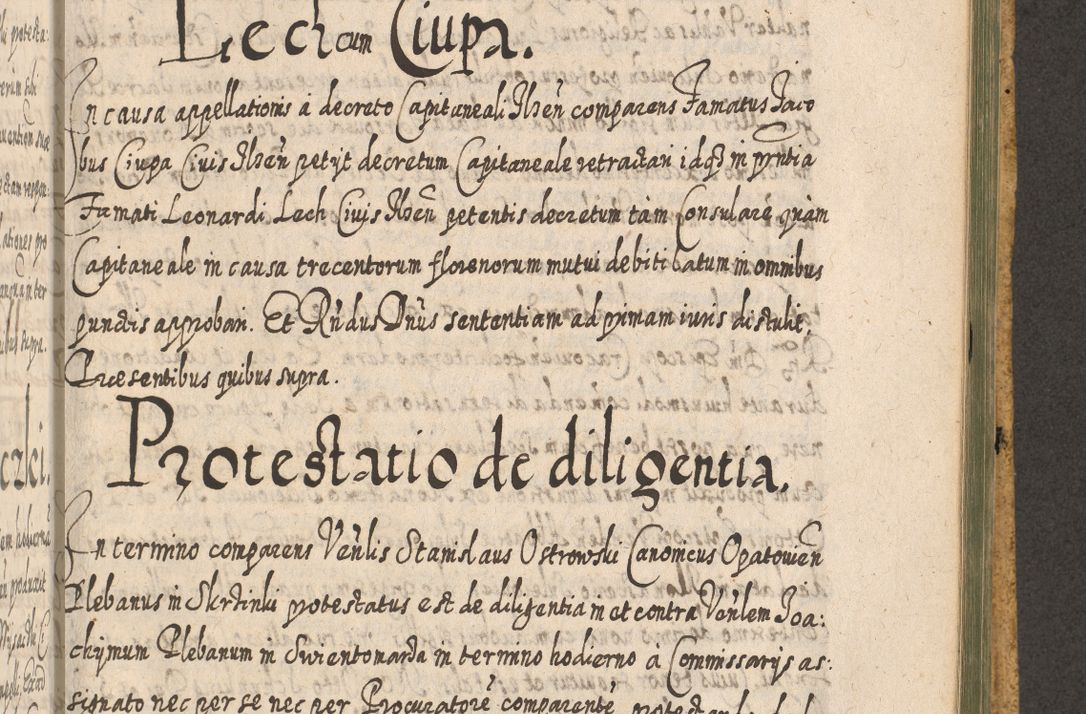 Lech cum Ciupa.
In causa appellationis à decreto Capitaneali Ilzeń comparens Famatus Jaco
bus Ciupa Civis Ilzeń petijt decretum Capitaneale retractari idq3 in pñtia
Famati Leonardi Lech Civis Ilzeń petentis decretum tàm Consulare quàm
Capitaneale in causa trecentorum florenorum mutui debiti latum in omnibus
punctis approbari. Et Rńdus Dńus sententiam ad primam iuris distulit.
Praesentibus quibus supra.
Protestatio de diligentia.
In termino comparens Veńlis Stanislaus Ostrowski Canonicus Opatovień
Plebanus in Skrzinki protestatus est de diligentia in et contra Veńlem Joa:
chijmum Plebanum in Swientomarza in termino hodierno à Commissarijs as:
signato nec per se nec per Procuratorē comparentē